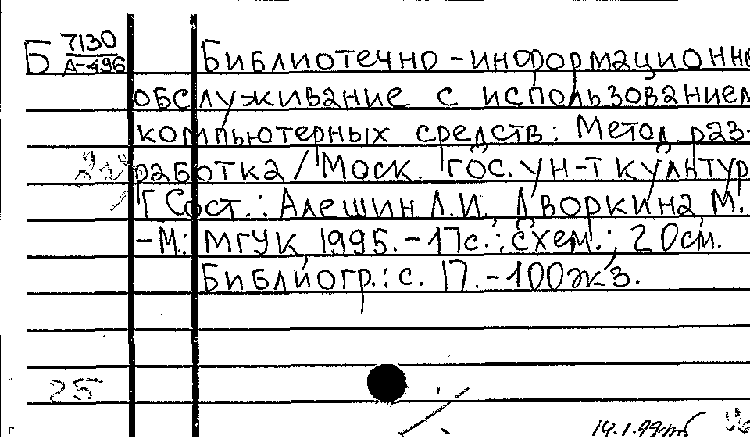 Б 7130
А-496
Библиотечно-информационн
обслуживание с использованием
компьютерных средств: Метод. раз-
работка / Моск. гос. ун-т культур
[ Сост.: Алешин Л.И., Дворкина М.
-М.: МГУК, 1995.-17с.: схем.; 20см.
Библиогр.: с. 17.-100экз.
25